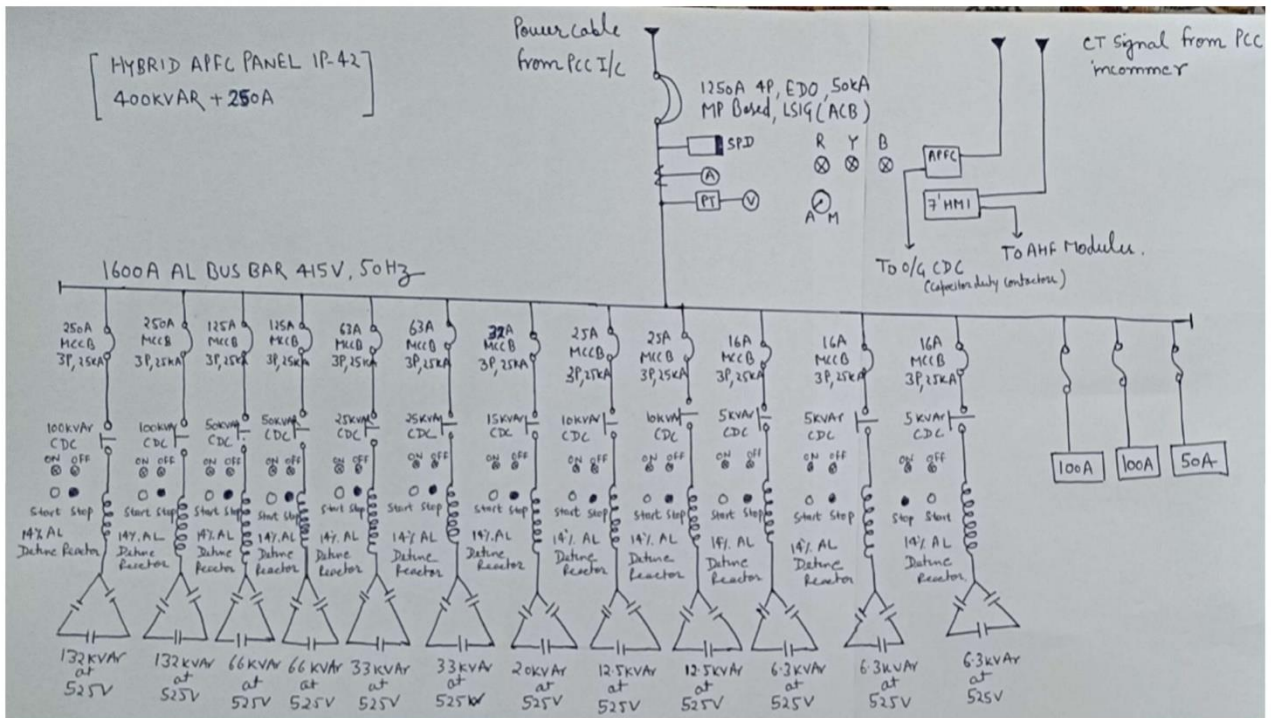 HYBRID APFC PANEL IP-42
400KVAR + 250A
Power cable
from PCC I/C
1250A 4P, EDO, 50kA
MP Based, LSIG (ACB)
SPD
A
PT
V
R Y B
A M
CT Signal from PCC
incommer
APFC
7" HMI
To O/G CDC
(Capacitor duty contactors)
To AHF Modules.
1600A AL BUS BAR 415V, 50Hz
250A
MCCB
3P, 25kA
100kVAr
CDC
ON OFF
Start Stop
14% AL
Detune Reactor
132KVAr
at
525V
250A
MCCB
3P, 25kA
100kVAr
CDC
ON OFF
Start Stop
14% AL
Detune
Reactor
132KVAr
at
525V
125A
MCCB
3P, 25kA
50kVAr
CDC
ON OFF
Start Stop
14% AL
Detune
Reactor
66KVAr
at
525V
125A
MCCB
3P, 25kA
50kVAr
CDC
ON OFF
Start Stop
14% AL
Detune
Reactor
66KVAr
at
525V
63A
MCCB
3P, 25kA
25KVAr
CDC
ON OFF
Start Stop
14% AL
Detune
Reactor
33KVAr
at
525V
63A
MCCB
3P, 25kA
25KVAr
CDC
ON OFF
Start Stop
14% AL
Detune
Reactor
33KVAr
at
525V
32A
MCCB
3P, 25kA
15KVAr
CDC
ON OFF
Start Stop
14% AL
Detune
Reactor
20KVAr
at
525V
25A
MCCB
3P, 25kA
10KVAr
CDC
ON OFF
Start Stop
14% AL
Detune
Reactor
12.5KVAr
at
525V
25A
MCCB
3P, 25kA
10kVAr
CDC
ON OFF
Start Stop
14% AL
Detune
Reactor
12.5KVAr
at
525V
16A
MCCB
3P, 25kA
5KVAr
CDC
ON OFF
Start Stop
14% AL
Detune
Reactor
6.3KVAr
at
525V
16A
MCCB
3P, 25kA
5KVAr
CDC
ON OFF
Start Stop
14% AL
Detune
Reactor
6.3KVAr
at
525V
16A
MCCB
3P, 25kA
5KVAr
CDC
ON OFF
Stop Start
14% AL
Detune
Reactor
6.3KVAr
at
525V
100A
100A
50A